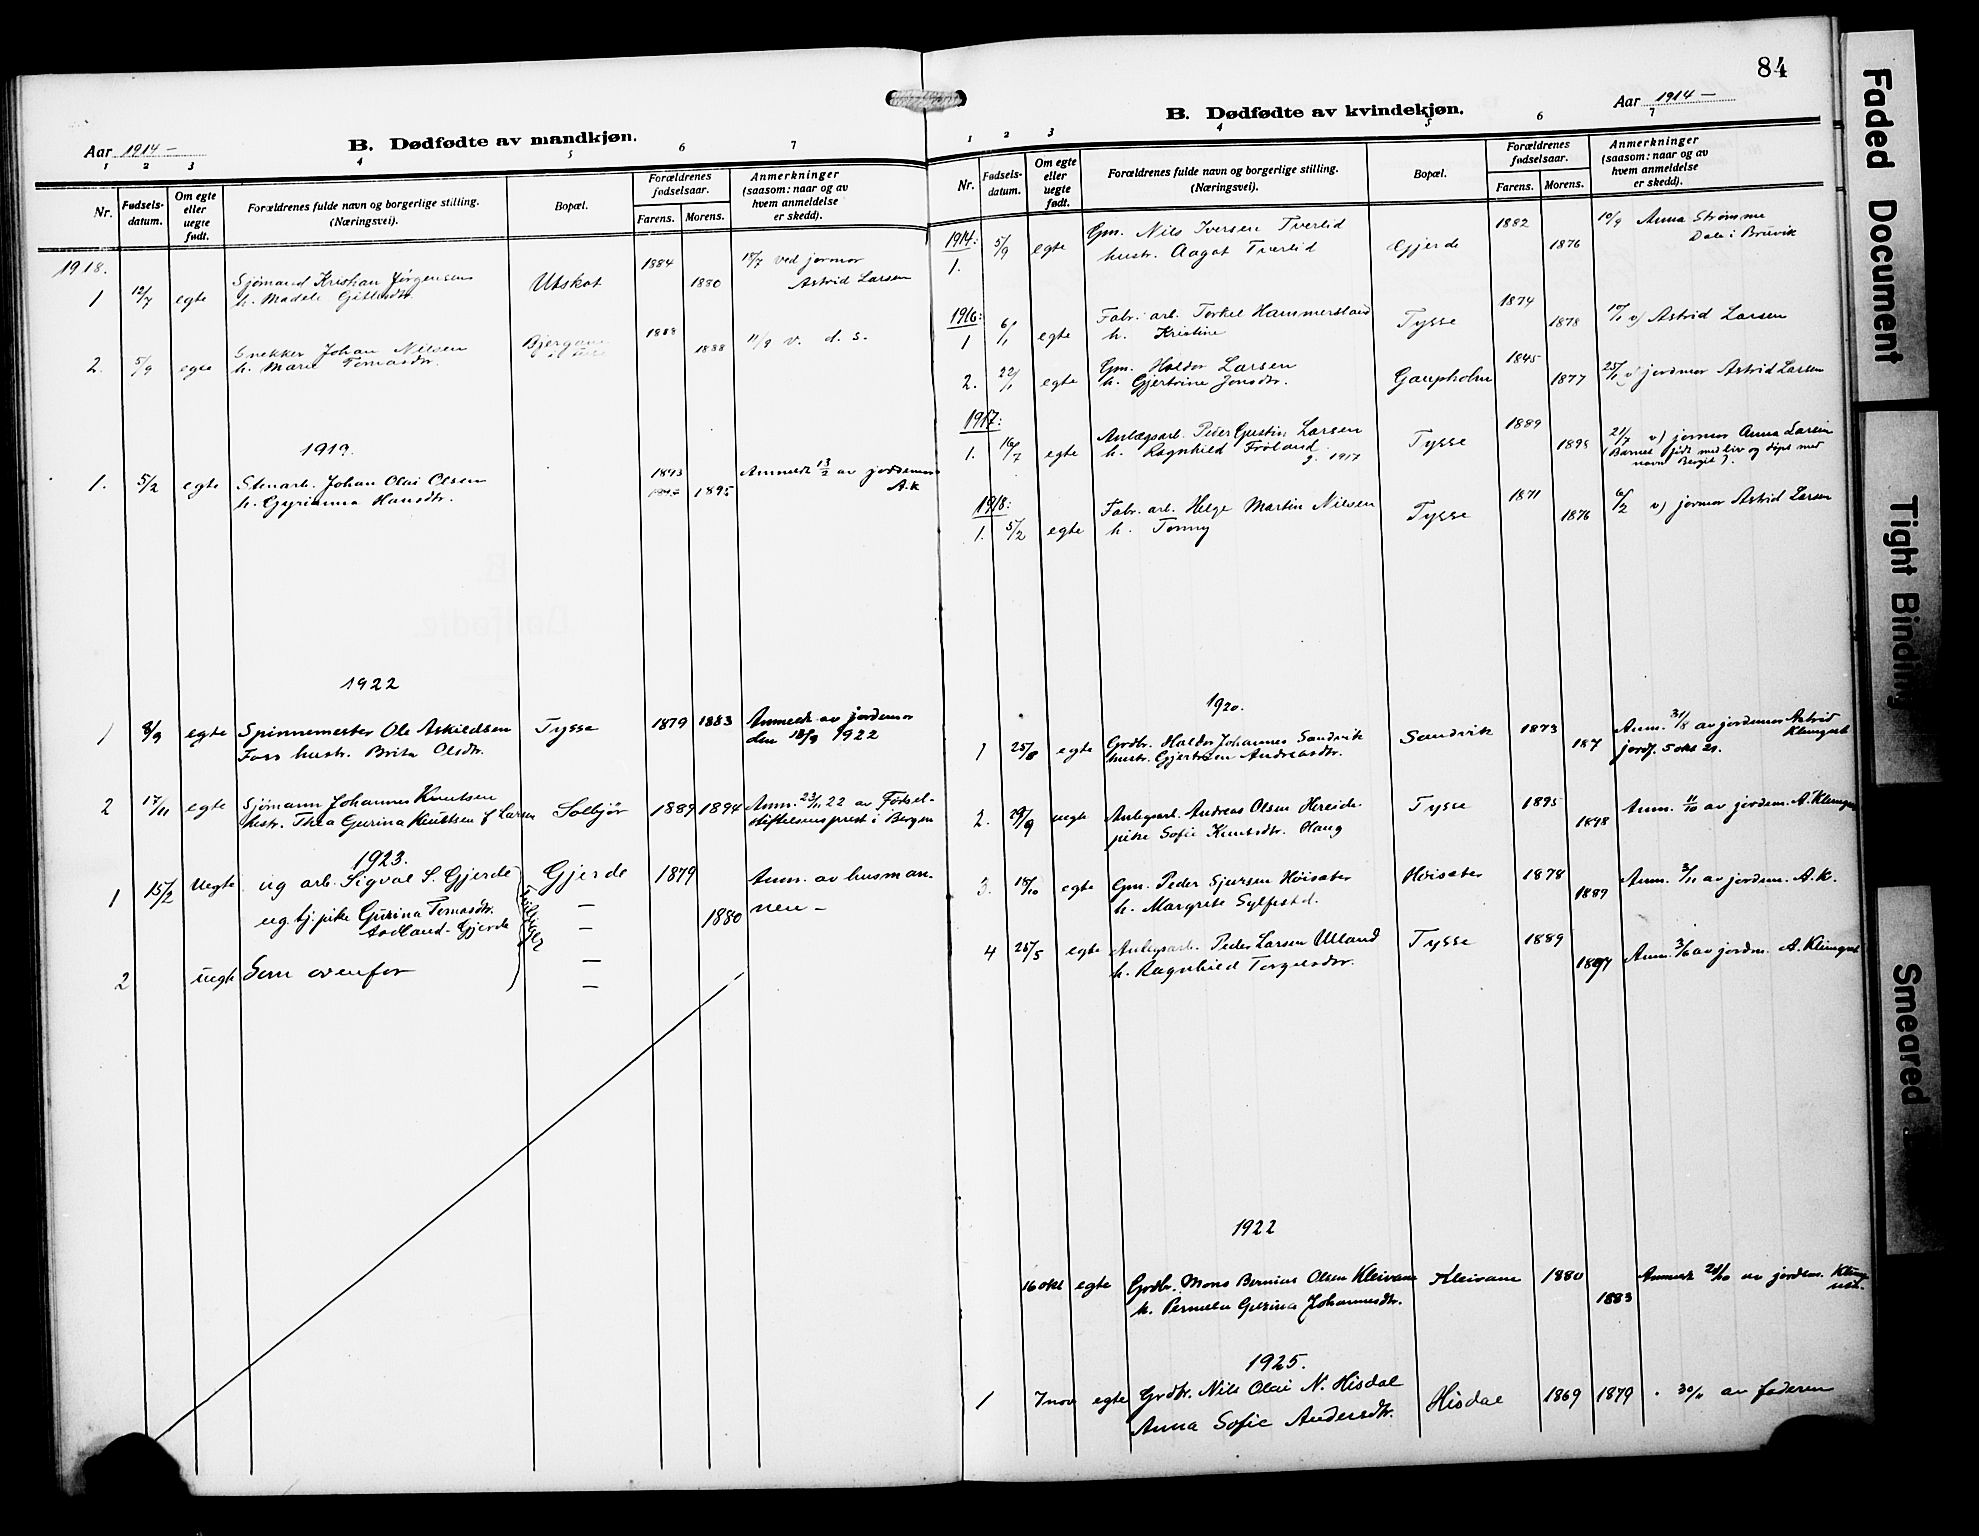 Aar 1914 –
B. Dødfødte av mandkjøn.
1 2 3 4 5 6 7
Nr.
Fødsels-
datum.
Om egte
eller
uegte
født.
Forældrenes fulde navn og borgerlige stilling.
(Næringsvei).
Bopæl.
Forældrenes
fødselsaar.
Farens. Morens.
Anmerkninger
(saasom: naar og av
hvem anmeldelse
er skedd).
1918.
1 12/7 egte Sjömand Kristian Jørgensen Utskot 1884 1880 ved jormor
Astrid Larsen
2. 5/9 egte Snekker Johan Nilsen 1888 1888 11/9 v. d. s.
h. Marie Tomasdtr.
1919.
1. 5/2 egte Stenarb. Johan Olai Olsen 1893 1895 Anmeldt 13/2 av jordemor
h. Gyrianna Hansdtr. A.K
1922
1 8/9 egte Spinnemester Ole Askildsen Tysse 1879 1883 Anmeldt av jordemor
Foss hustr. Brita Olsdtr. den 18/9 1922
2 17/11 egte Sjömann Johannes Knutsen Solbjör 1889 1894 Anm. 23/11 22 av Födsel-
hustr. Thea Gurina Knutsen f. Larsen stiftelsens prest i Bergen
1923.
1 15/2 Uegte ug arb. Sigval S. Gjerde Gjerde 1879 Anm. av husman-
ug. tj. pike Gurina Tomasdtr. – 1880 nen –
Aadland - Gjerde –
Tvillinger
2 uegte Som ovenfor –
–
84
B. Dødfødte av kvindekjøn.
Aar 1914 –
1 2 3 4 5 6 7
Nr.
Fødsels-
datum.
Om egte
eller
uegte
født.
Forældrenes fulde navn og borgerlige stilling.
(Næringsvei).
Bopæl.
Forældrenes
fødselsaar.
Farens. Morens.
Anmerkninger
(saasom: naar og av
hvem anmeldelse
er skedd).
1914:
1. 5/9 egte Gm. Nils Iversen Tverlid Gjerde 1882 1876 10/9 Anna Strømme
hustr. Aagot Tverlid Dale i Bruvik
1916:
1 6/1 egte Fabr. arb. Torkel Hammersland Tysse 1874 1878 v) Astrid Larsen
h. Kristine
2. 22/1 egte Gm. Haldor Larsen Gaupholm 1845 1877 25/1 v) jordmor Astrid Larsen
h. Gjertrine Jonsdtr.
1917:
1. 16/7 egte Anlægsarb. Peder Gustin Larsen Tysse 1889 1895 21/7 v) jormor Anna Larsen
h. Ragnhild Fröland (Barnet födt med liv og döpt med
g. 1917 navn Bergit).
1918:
1. 5/2 egte Fabr. arb. Helge Martin Nilsen Tysse 1871 1876 6/2 v) jormor Astrid Larsen
h. Tomny
1920.
1 25/8 egte Grdbr. Haldor Johannes Sandvik Sandvik 1873 187 Anm. 31/8 av jordemor Astrid
hustr. Gjertrsen Andreasdtr. jordf. 5 okt 21. Klungust
2. 29/9 uegte Anlegsarb. Andreas Olsen Hereide Tysse 1895 1898 Anm. 11/10 av jordem. A. Klungust
pike Sofie Knutsdtr. Haug
3. 15/10 egte Gm. Peder Sjursen Höisæter Höisæter 1878 1887 Anm. 3/11 av jordem. A.K.
h. Margrete Sylfestd.
4 25/5 egte Anlegsarb. Peder Larsen Ulland Tysse 1889 1897 Anm. 3/6 av jordm. A. Klungust
h. Ragnhild Torgilsdtr.
1922
16 okt egte Grdbr. Mons Bernius Olsen Kleivane Kleivane 1880 1883 Anmeldt 20/10 av jordem. Klung-
h. Pernella Gurina Johannesdtr. ust.
1925.
1 7 nov egte Grdbr. Nils Olai N. Hisdal Hisdal 1869 1879 30/11 av faderen
Anna Sofie Andersdtr.
Faded Document
Tight Binding
Smeared